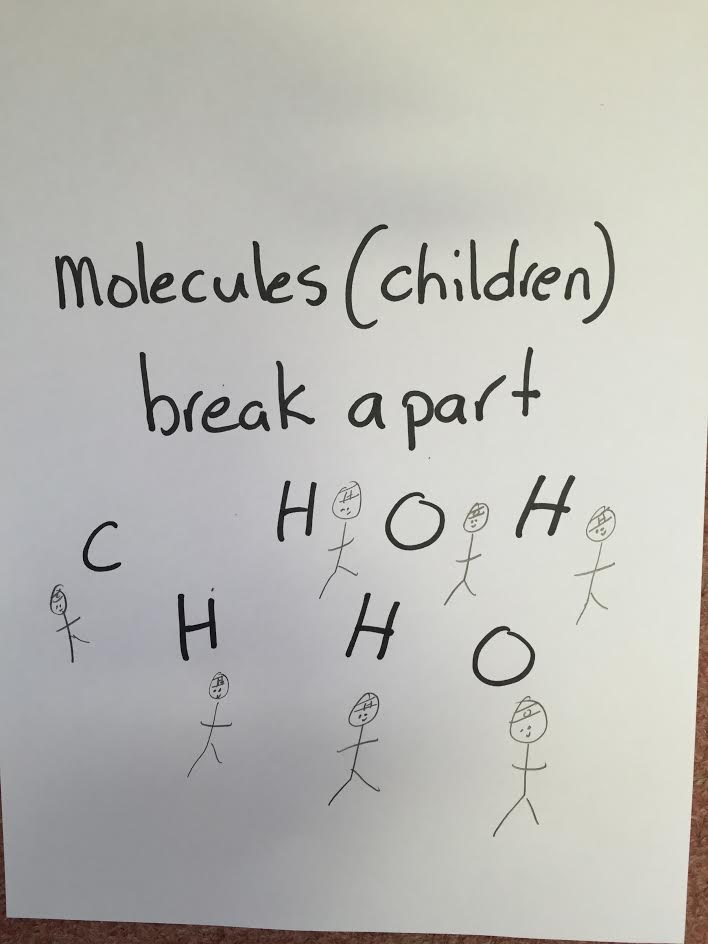 Molecules (children)
break apart
C H O H
H H O